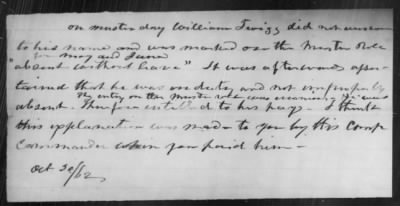 on muster day William Twigg did not answer
to his name and was marked on the Muster Role
for may and June
"absent without leave" It was afterwards asce-
tained that he was on duty and not improperly
The entry on the Muster role was erroneous
absent. Therefore entitled to his pay. I think
this explanation was made to you by his Comp
Commander when you paid him—
Oct 30/62